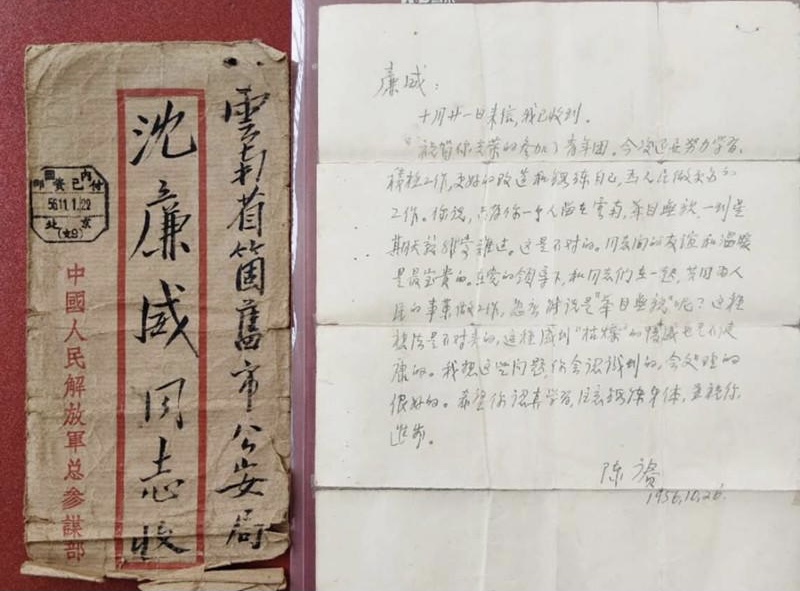 雲南省箇舊市公安局
沈廉威同志收
中國人民解放軍总参謀部
國內
郵資已付
56.11.1.22
北京
廉威：
十月廿一日来信，我已收到。
祝贺你光荣的参加了青年团。今后还要努力学习，
積極工作，更好的改造和锻练自己，为人民做更多的
工作。你说，只有你一个人留在雲南，举目無親，一到星
期天就非常難过。这是不对的。同志間的友谊和温暖
是最宝贵的。在党的领导下，和同志们在一起，共同为人
民的事業做工作，怎么能说是"举目無親"呢？这种
想法是不对的，这种感到"枯燥"的情感也是不健
康的。我想这些问题，你会認識到的，会处理的
很好的。希望你認真学習，注意锻练身体，並祝你
进步。
陈赓
1956.10.26.